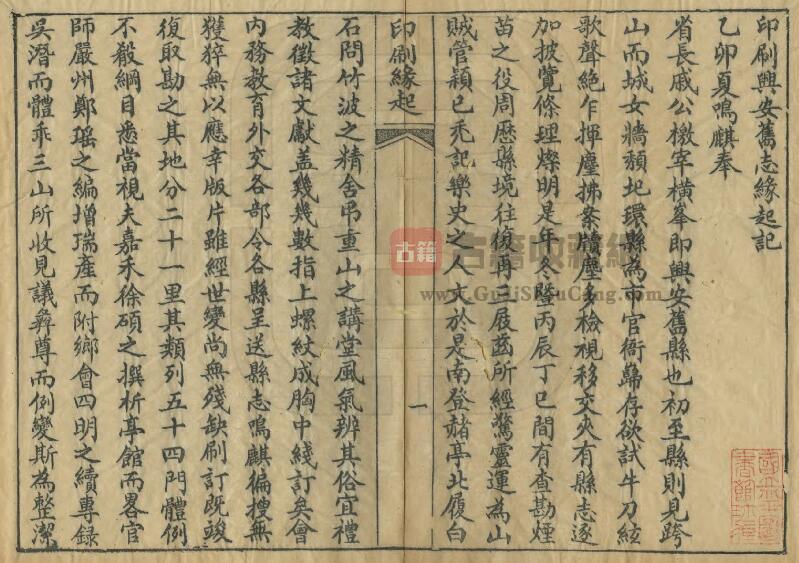 印刷興安舊志緣起記
乙卯夏鳴麒奉
省長戚公檄宰橫峯即興安舊縣也初至縣則見跨
山而城女牆頽圯環縣為市官衙巋存欲試牛刀絃
歌聲絕乍揮塵拂案牘塵多檢視移交夾有縣志逐
加披覽條理燦明是年冬暨丙辰丁巳間有查勘煙
苗之役周歷縣境往復再三展齒所經驚靈運為山
賊管穎已禿記樂史之人文於是南登赭亭北履白
印刷緣起
一
石問竹波之精舍弔重山之講堂風氣辨其俗宜禮
教徵諸文獻盖幾幾數指上螺紋成胸中綫訂矣會
內務教育外交各部令各縣呈送縣志鳴麒徧搜無
獲猝無以應幸版片雖經世變尚無殘缺刷訂既竣
復取勘之其地分二十一里其類列五十四門體例
不殺綱目悉當視夫嘉禾徐碩之撰析亭館而畧官
師嚴州鄭瑤之編增瑞產而附鄉會四明之續專錄
吳潛而體乖三山所收見議彝尊而例變斯為整潔
古籍
古籍收藏網
www.GuJiShouCang.com